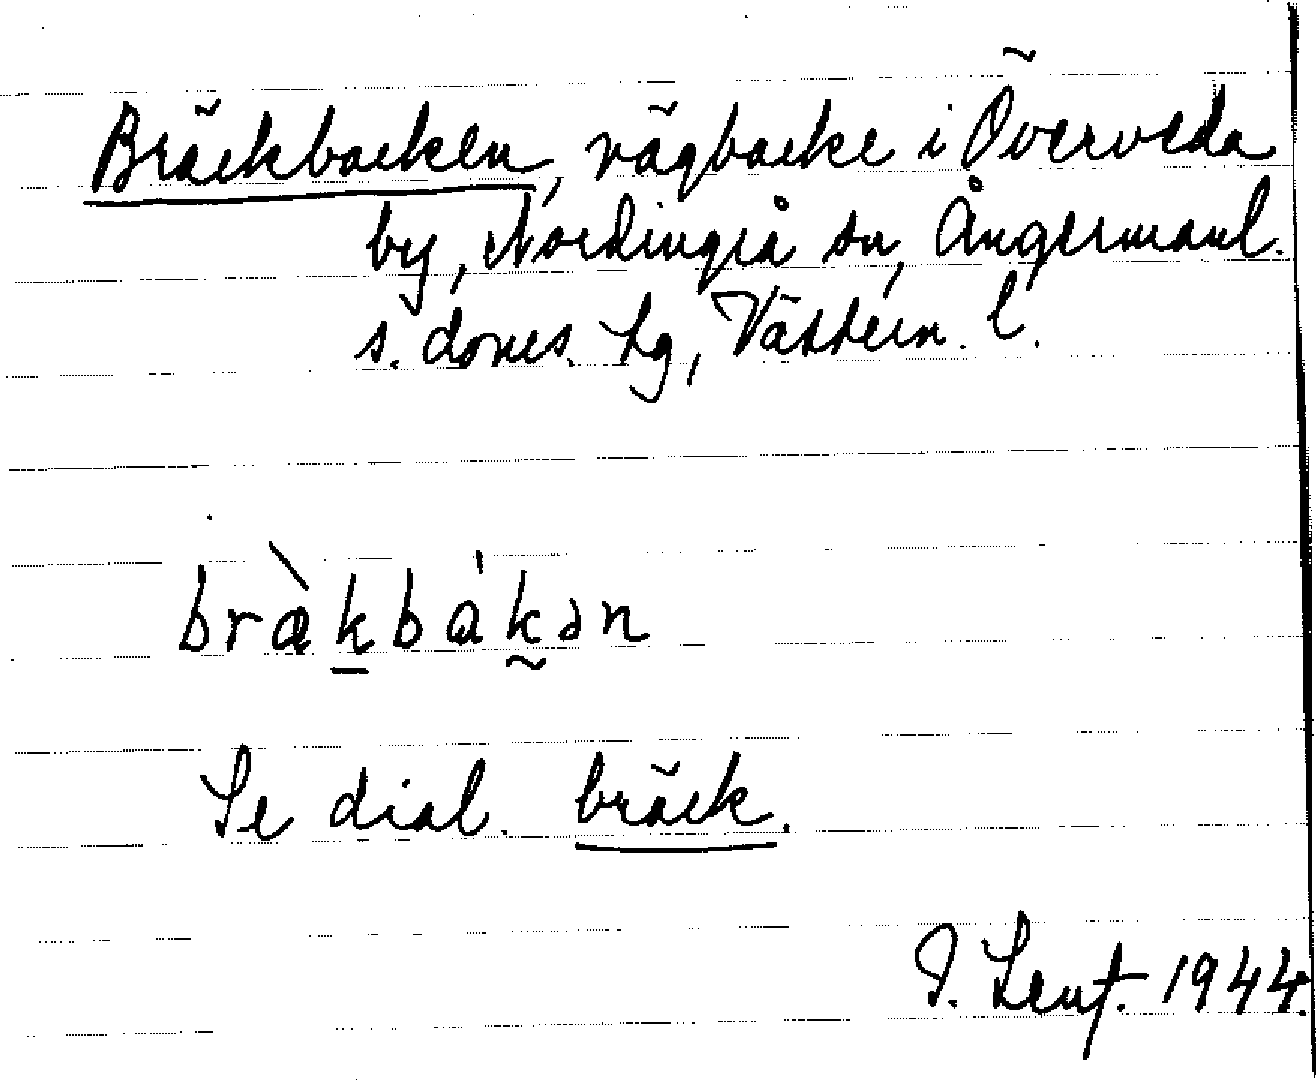 Bräckbacken, vägbacke i Överveda
by, Nordingrå sn, Ångermanl.
s. domes. hg, Västern. l.
bràkbákən
Se dial. bräck.
1944.